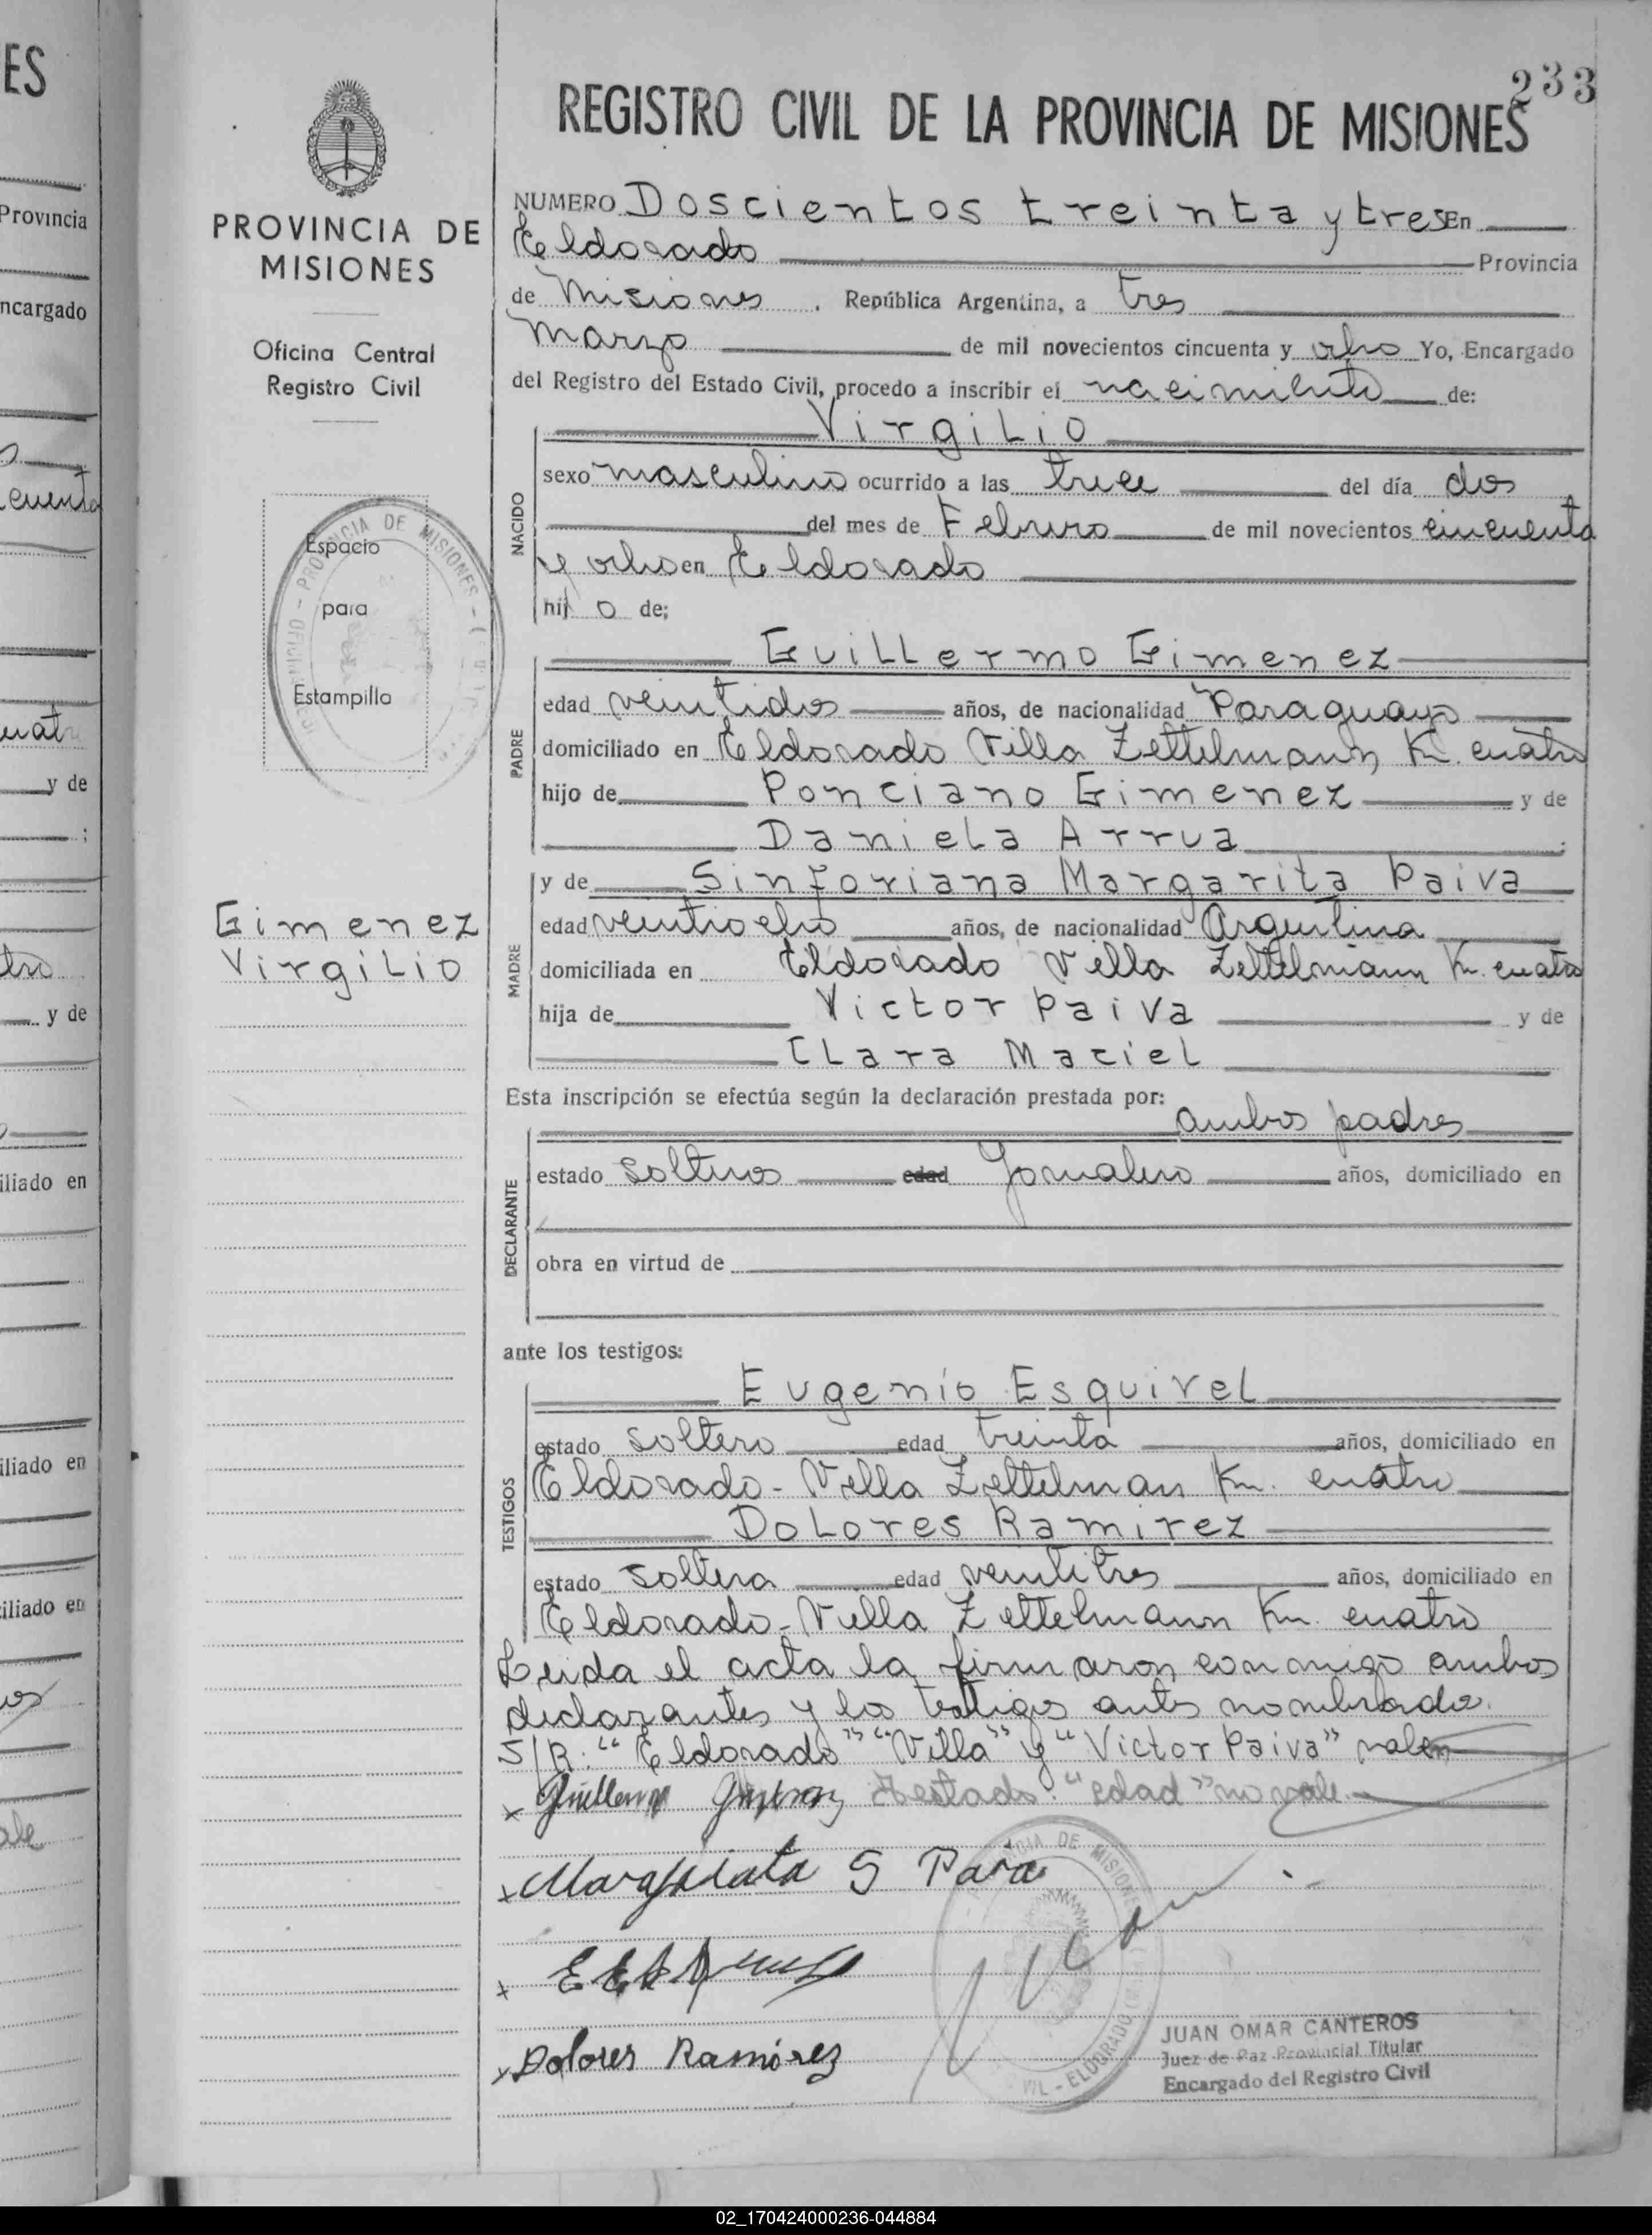 ES
Provincia
ncargado
cuenta
uatr
y de
tro
y de
iliado en
iliado en
iliado en
ale
PROVINCIA DE
MISIONES
Oficina Central
Registro Civil
Espacio
para
Estampilla
Gimenez
Virgilio
233
REGISTRO CIVIL DE LA PROVINCIA DE MISIONES
NUMERO Doscientos treinta y tres En
Eldorado Provincia
de Misiones, República Argentina, a tres
Marzo de mil novecientos cincuenta y ocho Yo, Encargado
del Registro del Estado Civil, procedo a inscribir el nacimiento de:
Virgilio
NACIDO
sexo masculino ocurrido a las trece del día dos
del mes de Febrero de mil novecientos cincuenta
y ocho en Eldorado
hijo de;
Guillermo Gimenez
PADRE
edad veintidos años, de nacionalidad Paraguayo
domiciliado en Eldorado Villa Zettelmann Km. cuatro
hijo de Ponciano Gimenez y de
Daniela Arrua;
y de Sinforiana Margarita Paiva
MADRE
edad veintiocho años, de nacionalidad Argentina
domiciliada en Eldorado Villa Zettelmann Km. cuatro
hija de Victor Paiva y de
Clara Maciel
Esta inscripción se efectúa según la declaración prestada por:
ambos padres
DECLARANTE
estado solteros edad Jornalero años, domiciliado en
obra en virtud de
ante los testigos:
Eugenio Esquivel
TESTIGOS
estado soltero edad treinta años, domiciliado en
Eldorado - Villa Zettelman Km. cuatro
Dolores Ramirez
estado soltera edad veintitres años, domiciliado en
Eldorado - Villa Zettelmann Km. cuatro
Leida el acta la firmaron conmigo ambos
declarantes y los testigos antes nombrado.
S/R: "Eldorado" "Villa" y "Victor Paiva" valen
x Guillermo Gimenez Testado: "edad" no vale.
x Margarita S Paiva
x
x Dolores Ramirez
PROVINCIA DE MISIONES
ELDORADO
JUAN OMAR CANTEROS
Juez de Paz Provincial Titular
Encargado del Registro Civil
02_170424000236-044884